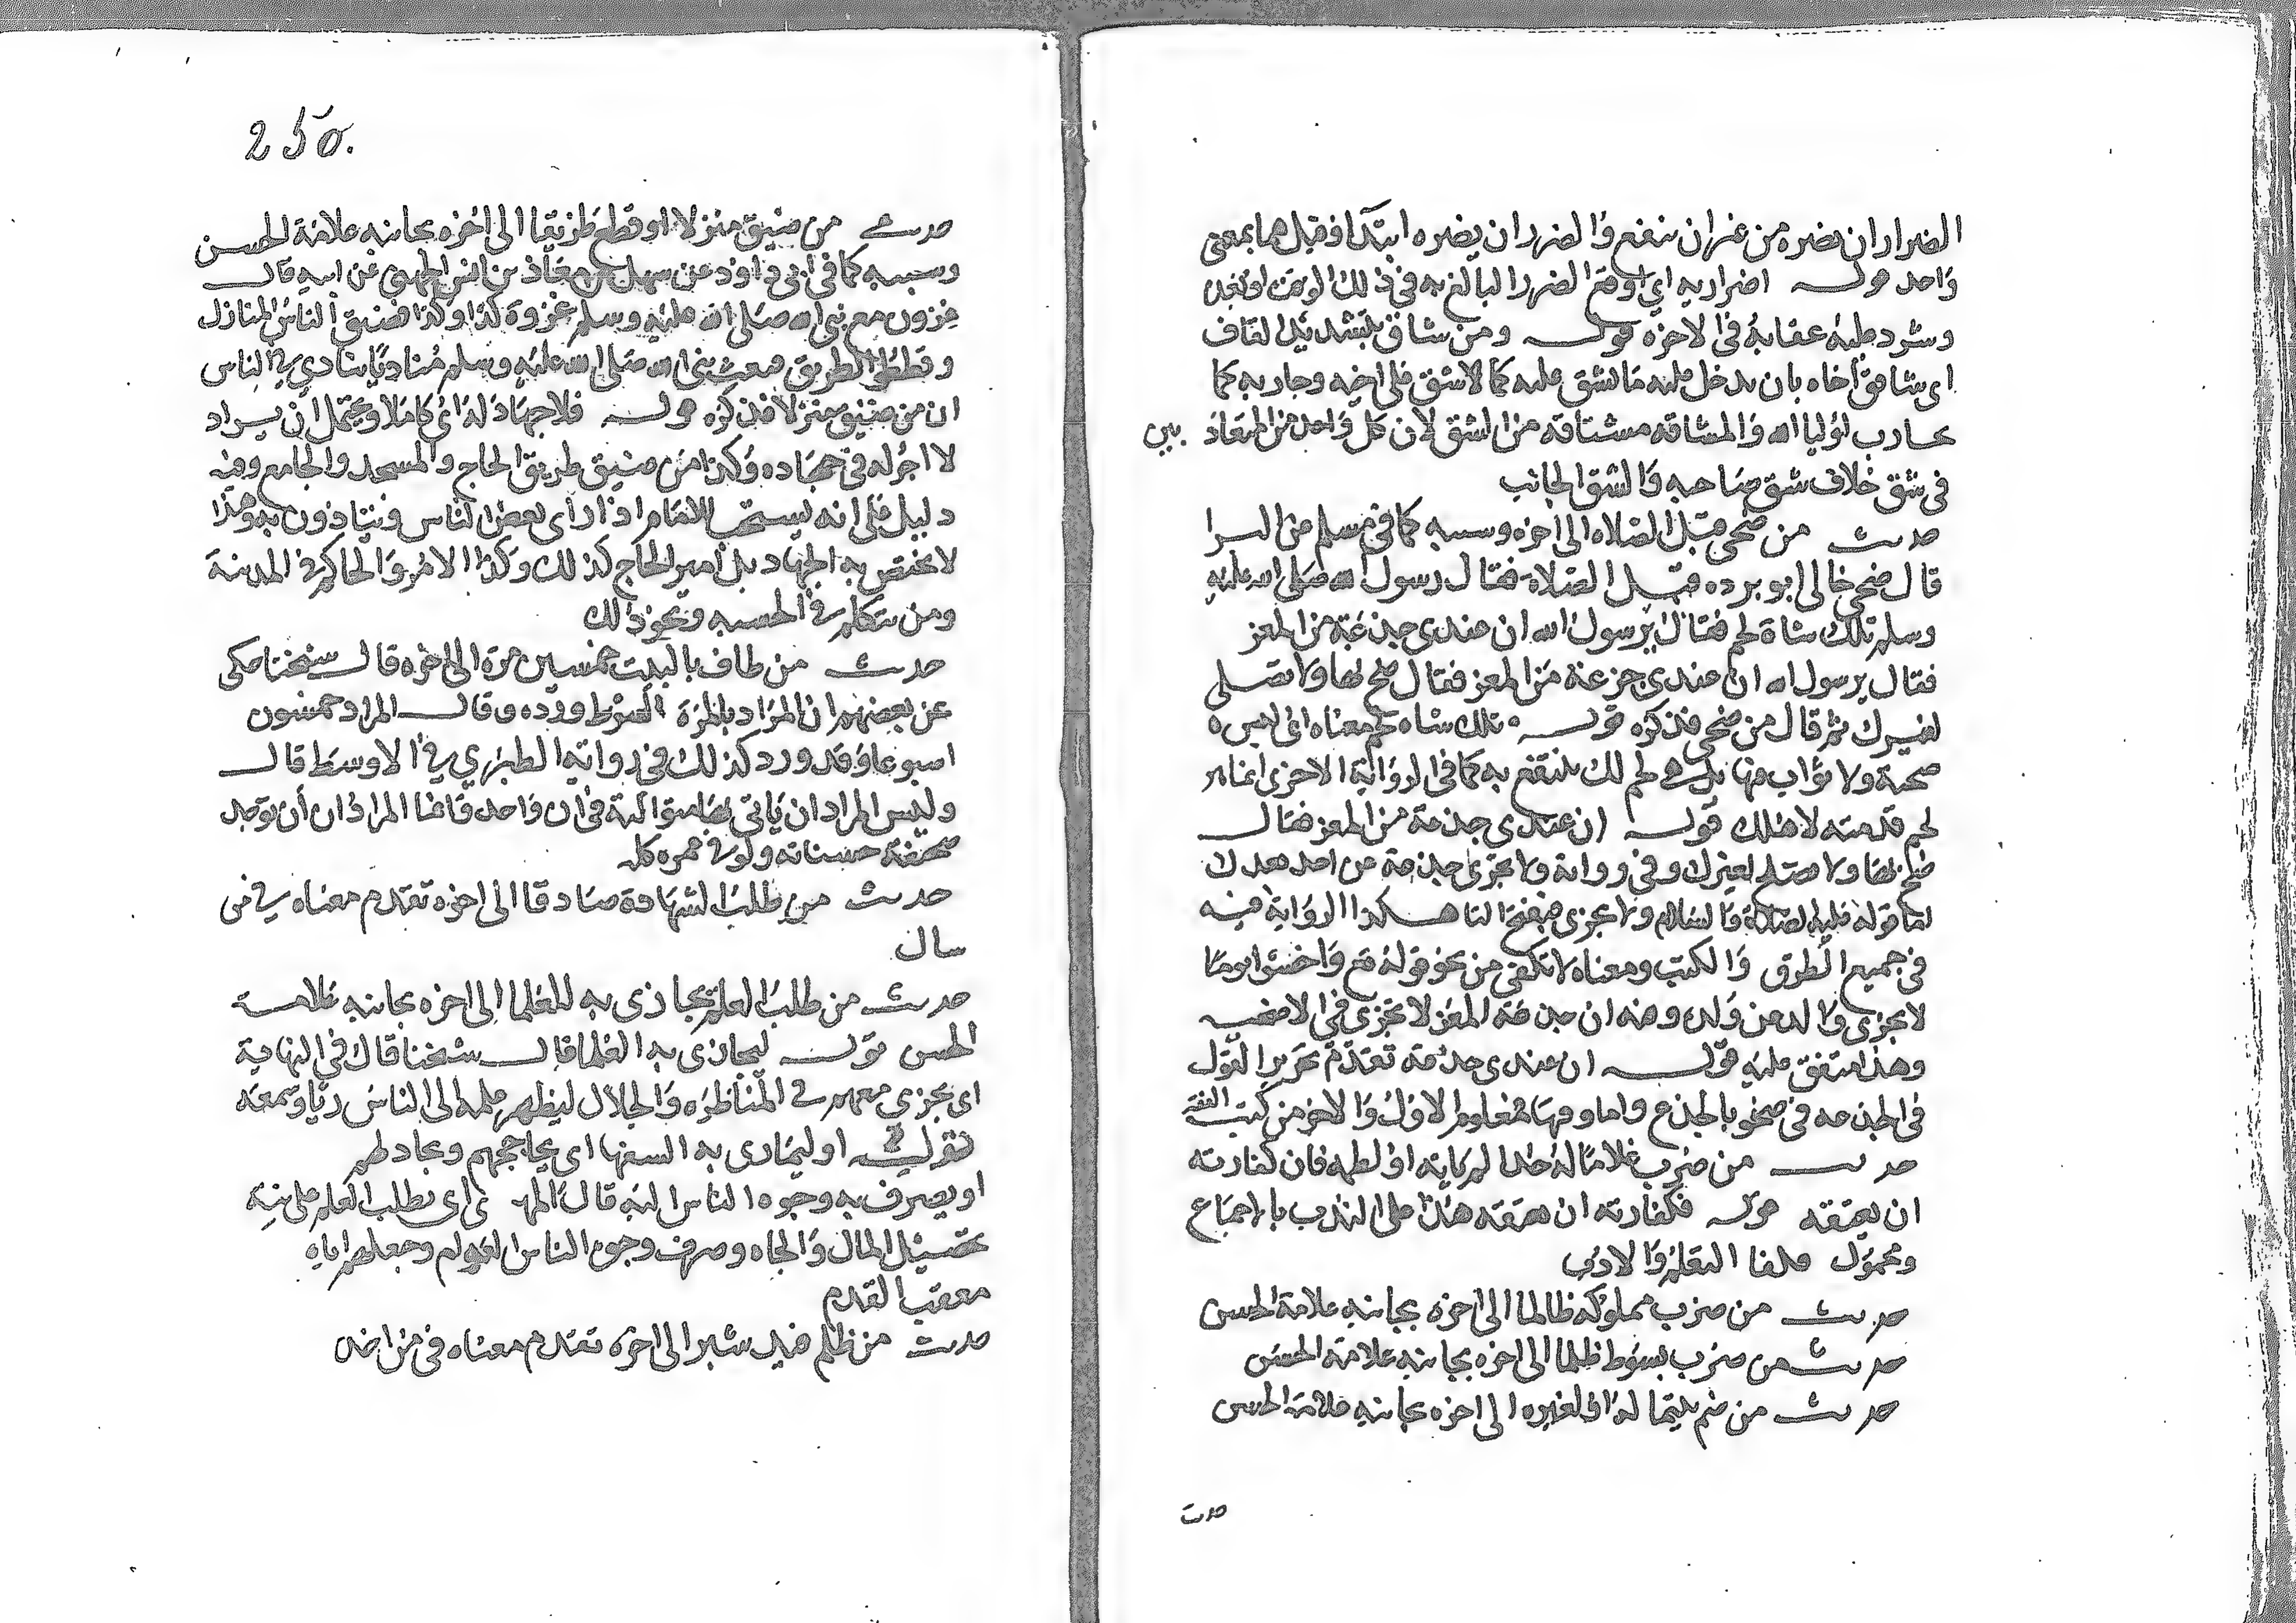 الضرار ان يضره من غير ان ينتفع والضرر ان يضره ابتدا وقيل هما بمعنى
واحد قوله اضر الله به اي اوقع الضرر البالغ به في ذلك الوقت او بعده
وشدد عليه عقابه في الاخرة قوله ومن شاق بتشديد القاف
اي شاقق أخاه بان يدخل عليه ما يشق عليه كما لا شق على اخيه وجاد به كما
يحارب اوليا الله والمشاقة مشتاقة من الشق لان كل واحد من المتعادين
في شق خلاف شق صاحبه والشق الجانب
حديث من ضحى قبل الصلاه الى اخره وسببه كما في مسلم عن البرا
قال ضحى خالى ابو برده قبل الصلاة فقال رسول الله صلى الله عليه
وسلم تلك شاة لحم فقال يرسول الله ان عندى جذعة من المعز
فقال يرسول الله ان عندي جزعة من المعز فقال ضح بها ولا تصلى
لغيرك ثم قال من ضحى فذكره قوله تلك شاه لحم معناه اى ليس
ضحية ولا ثواب فيها بل هي لحم لك ينتفع به كما في الرواية الاخرى انما هو
لحم قدمته لاهلك قوله ان عندى جذعة من المعز فقال
ضح بها ولا تصلح لغيرك وفي رواية ولا تجزى جذعة عن احد بعدك
اما قوله عليه الصلاة والسلام ولا تجزى فبفتح التا هكذا الرواية فيه
في جميع الطرق والكتب ومعناه لا تكفى من نحو قوله تع واخشوا يومًا
لا يجزى والد عن ولده وفيه ان جذعة المعز لا تجزى في الاضحيه
وهذا متفق عليه قوله ان عندى جذعة تقدم تحرير القول
في الجذعه في ضحو بالجذع واما وقتها فمعلوم الاول والاخر من كتب الفقه
حديث من ضرب غلامًا له حدا لم ياته او لطمه فان كفارته
ان يعتقه قوله فكفارته ان يعتقه هذا على الندب بالاجماع
ومحمول
حديث من ضرب مملوكه ظالما الى اخره بجانبه علامة الحسن
حديث من ضرب بسوط ظلما الى اخره بجانبه علامة الحسن
حديث من ضم يتيما له او لغيره الى اخره بجانبه علامة الحسن
حدث
250.
حديث من ضيق منزلا او قطع طريقا الى اخره بجانبه علامة الحسن
وسببه كما في ابى داود عن سهل بن معاذ بن انس الجهنى عن ابيه قال
غزوت مع نبى الله صلى الله عليه وسلم غزوة كذا وكذا فضيق الناس المنازل
وقطعوا الطريق فبعث نبى الله صلى الله عليه وسلم مناديًا ينادي في الناس
ان من ضيق منزلا فذكره قوله فلا جهاد له اى كاملا ويحتمل ان يراد
لا اجر له في جهاده وكذا من ضيق طريق الحاج والمسجد والجامع وفيه
دليل على انه يستحب للامام اذا راى بعض الناس يتاذون به وهذا
لا يختص به الجهاد بل امير الحاج كذلك وكذا الامر والحاكم في المدينة
ومن يتكلم في الحسبه ونحو ذلك
حديث من طاف بالبيت خمسين مرة الى اخره قال شيخنا حكى
عن بعضهم ان المراد بالمرة الشوط ورده وقال المراد خمسون
اسبوعا وقد ورد كذلك في رواية الطبري في الاوسط قال
وليس المراد ان ياتى بها متوالية في ان واحد وانما المراد ان توجد
صحيفة حسناته ولو في عمره كله
حديث من طلب الشهادة صادقا الى اخره تقدم معناه في من
سال
حديث من طلب العلم ليجازى به للعلما الى اخره بجانبه علامة
الحسن قوله ليجازى به العلما قال شيخنا قال في النهاية
اى يجري معهم في المناظره والجدال ليظهر علمه الى الناس ريا وسمعه
قوله او ليمارى به السفها اى يحاججهم ويجادلهم
او يصرف به وجوه الناس اليه قال اى يطلب العلم على نية
تحصيل المال والجاه وصرف وجوه الناس العوام وجعلهم اياه
معقب القدم
حديث من ظلم قيد شبرا الى اخره تقدم معناه في من اخذ